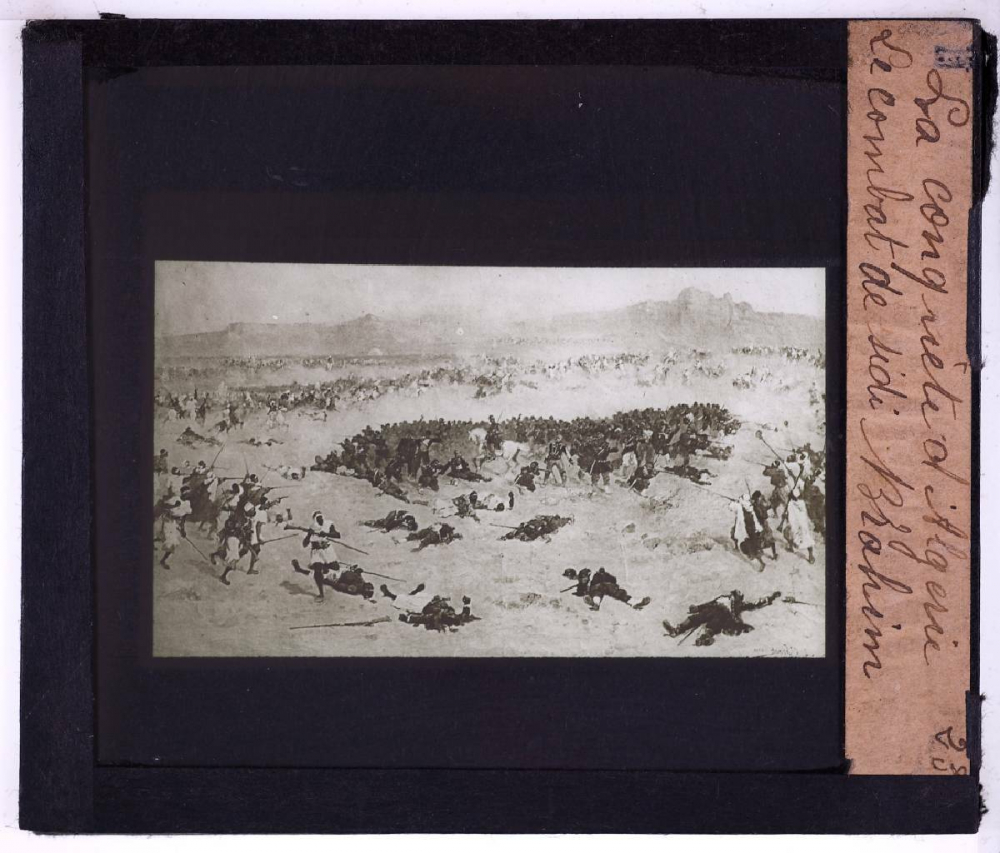 La conquète d'Algerie
Le combat de sidi Brahim
28